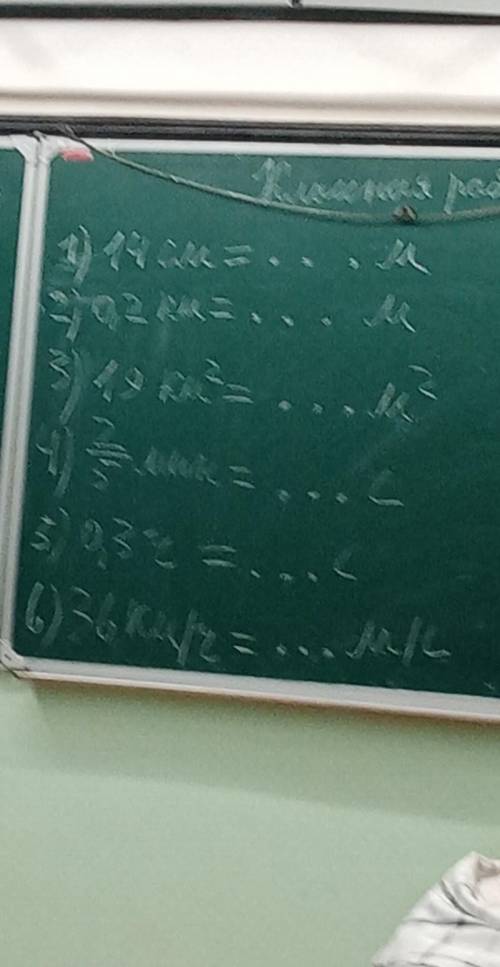 Классная раб
1) 14 см = . . . м
2) 0,2 км = . . . м
3) 19 км² = . . . . м²
4) 2/5 мин = . . . . с
5) 0,3 ч = . . . с
6) 36 км/ч = . . . м/с